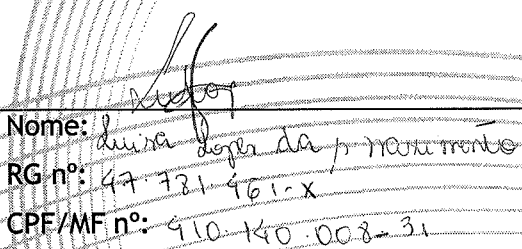 Nome: Luisa Lopes da p nascimento
RG nº: 47.781.461-X
CPF/MF nº: 410.140.008-31